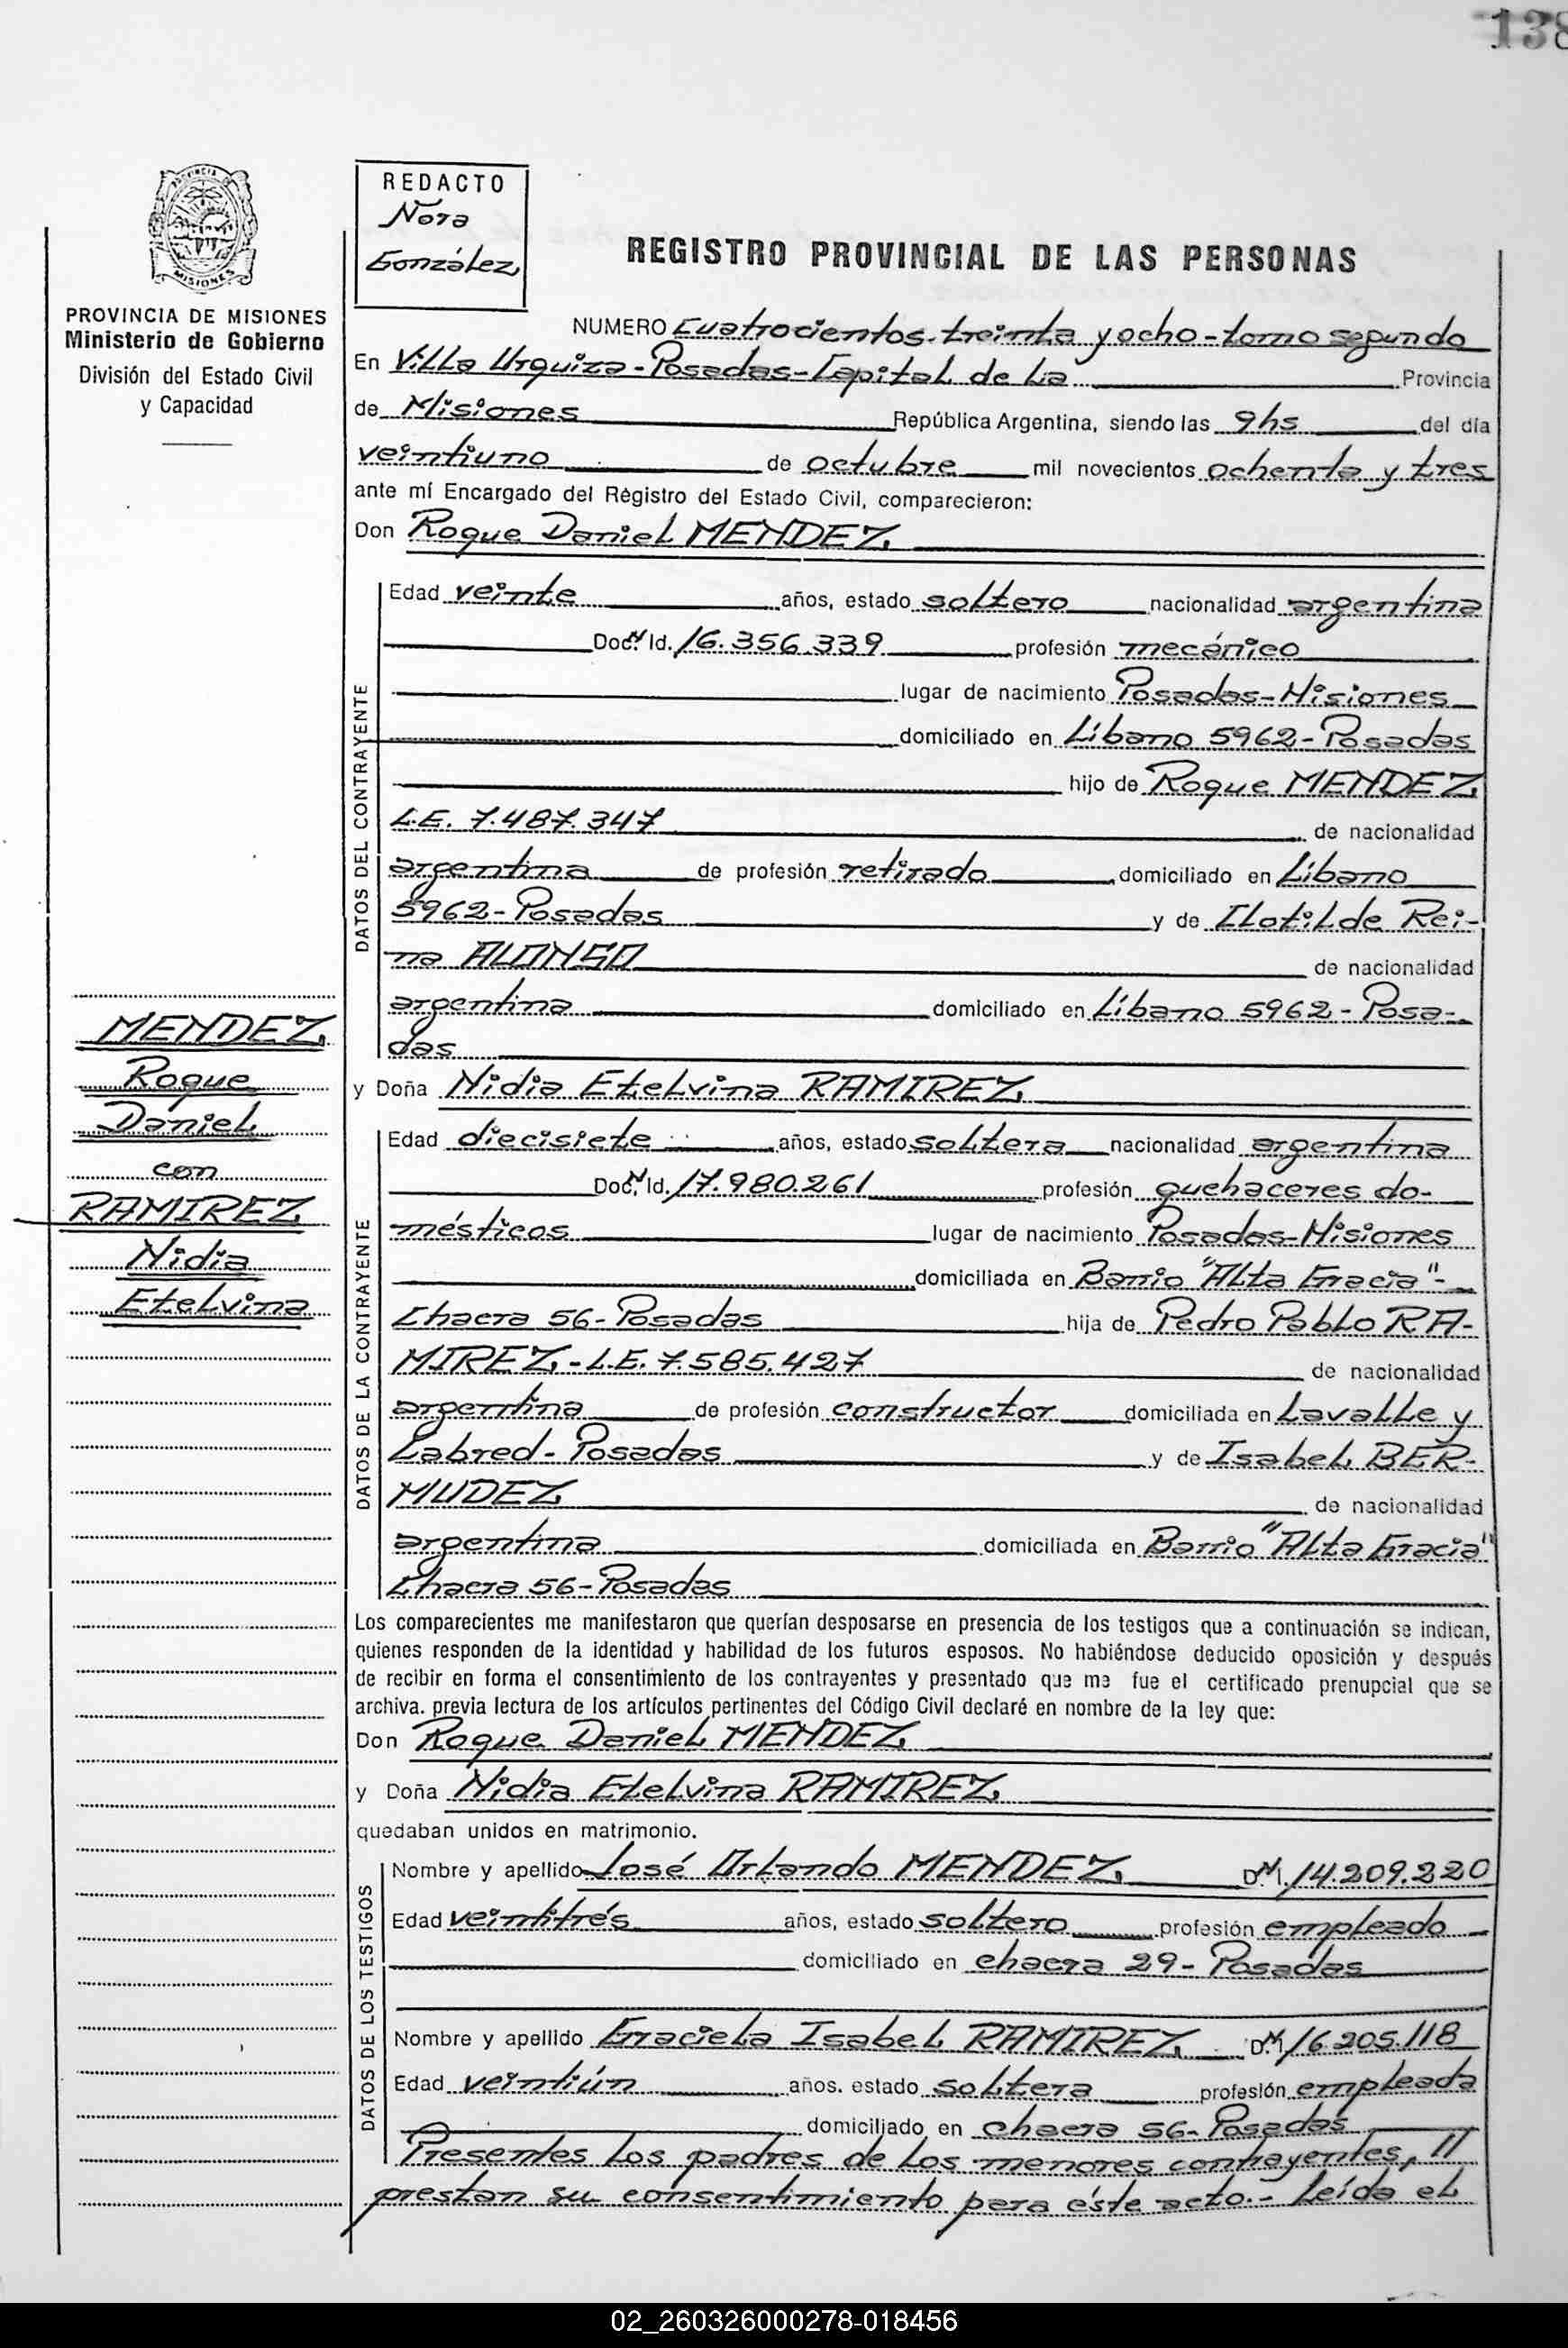 138
REDACTO
Nora
González
PROVINCIA DE MISIONES
MISIONES
PROVINCIA DE MISIONES
Ministerio de Gobierno
División del Estado Civil
y Capacidad
REGISTRO PROVINCIAL DE LAS PERSONAS
NUMERO Cuatrocientos treinta y ocho - tomo segundo
En Villa Urquiza - Posadas - Capital de la Provincia
de Misiones República Argentina, siendo las 9 hs del día
veintiuno de octubre mil novecientos ochenta y tres
ante mí Encargado del Règistro del Estado Civil, comparecieron:
Don Roque Daniel MENDEZ
DATOS DEL CONTRAYENTE
Edad veinte años, estado soltero nacionalidad argentina
Doc. N Id. 16.356.339 profesión mecánico
lugar de nacimiento Posadas - Misiones
domiciliado en Líbano 5962 - Posadas
hijo de Roque MENDEZ
L.E. 7.487.347 de nacionalidad
argentina de profesión retirado domiciliado en Líbano
5962 - Posadas y de Clotilde Rei-
na ALONSO de nacionalidad
argentina domiciliado en Líbano 5962 - Posa-
das
MENDEZ
Roque
Daniel
con
RAMIREZ
Nidia
Etelvina
y Doña Nidia Etelvina RAMIREZ
DATOS DE LA CONTRAYENTE
Edad diecisiete años, estado soltera nacionalidad argentina
Doc. N Id. 17.980.261 profesión quehaceres do-
mésticos lugar de nacimiento Posadas - Misiones
domiciliada en Barrio "Alta Gracia" -
Chacra 56 - Posadas hija de Pedro Pablo RA-
MIREZ - L.E. 7.585.427 de nacionalidad
argentina de profesión constructor domiciliada en Lavalle y
Cabred - Posadas y de Isabel BER-
MUDEZ de nacionalidad
argentina domiciliada en Barrio "Alta Gracia"
Chacra 56 - Posadas
Los comparecientes me manifestaron que querían desposarse en presencia de los testigos que a continuación se indican,
quienes responden de la identidad y habilidad de los futuros esposos. No habiéndose deducido oposición y después
de recibir en forma el consentimiento de los contrayentes y presentado que me fue el certificado prenupcial que se
archiva. previa lectura de los artículos pertinentes del Código Civil declaré en nombre de la ley que:
Don Roque Daniel MENDEZ
y Doña Nidia Etelvina RAMIREZ
quedaban unidos en matrimonio.
DATOS DE LOS TESTIGOS
Nombre y apellido José Orlando MENDEZ D.N.I. 14.209.220
Edad veintitrés años, estado soltero profesión empleado
domiciliado en chacra 29 - Posadas
Nombre y apellido Graciela Isabel RAMIREZ D.N.I. 16.205.118
Edad veintiún años. estado soltera profesión empleada
domiciliado en chacra 56 - Posadas
Presentes los padres de los menores contrayentes, //
prestan su consentimiento para éste acto. - Leída el
02_260326000278-018456